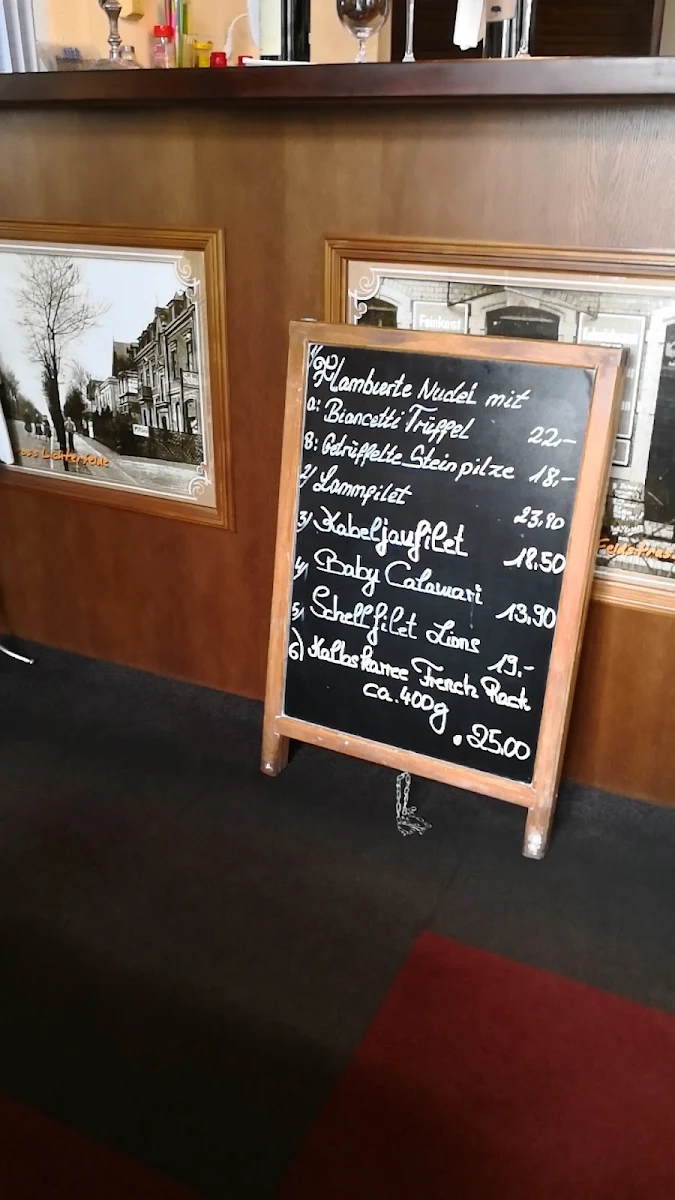 1/ Flambierte Nudel mit
a: Biancetti Trüffel 22,-
B: Getrüffelte Steinpilze 18,-
2/ Lammfilet 23,90
3/ Kabeljaufilet 18,50
4/ Baby Calamari 13,90
5/ Schellfilet Lions 19,-
6) Kalbskarree French Rack
ca. 400g .25.00
Feinkost
oss Lichterfelde